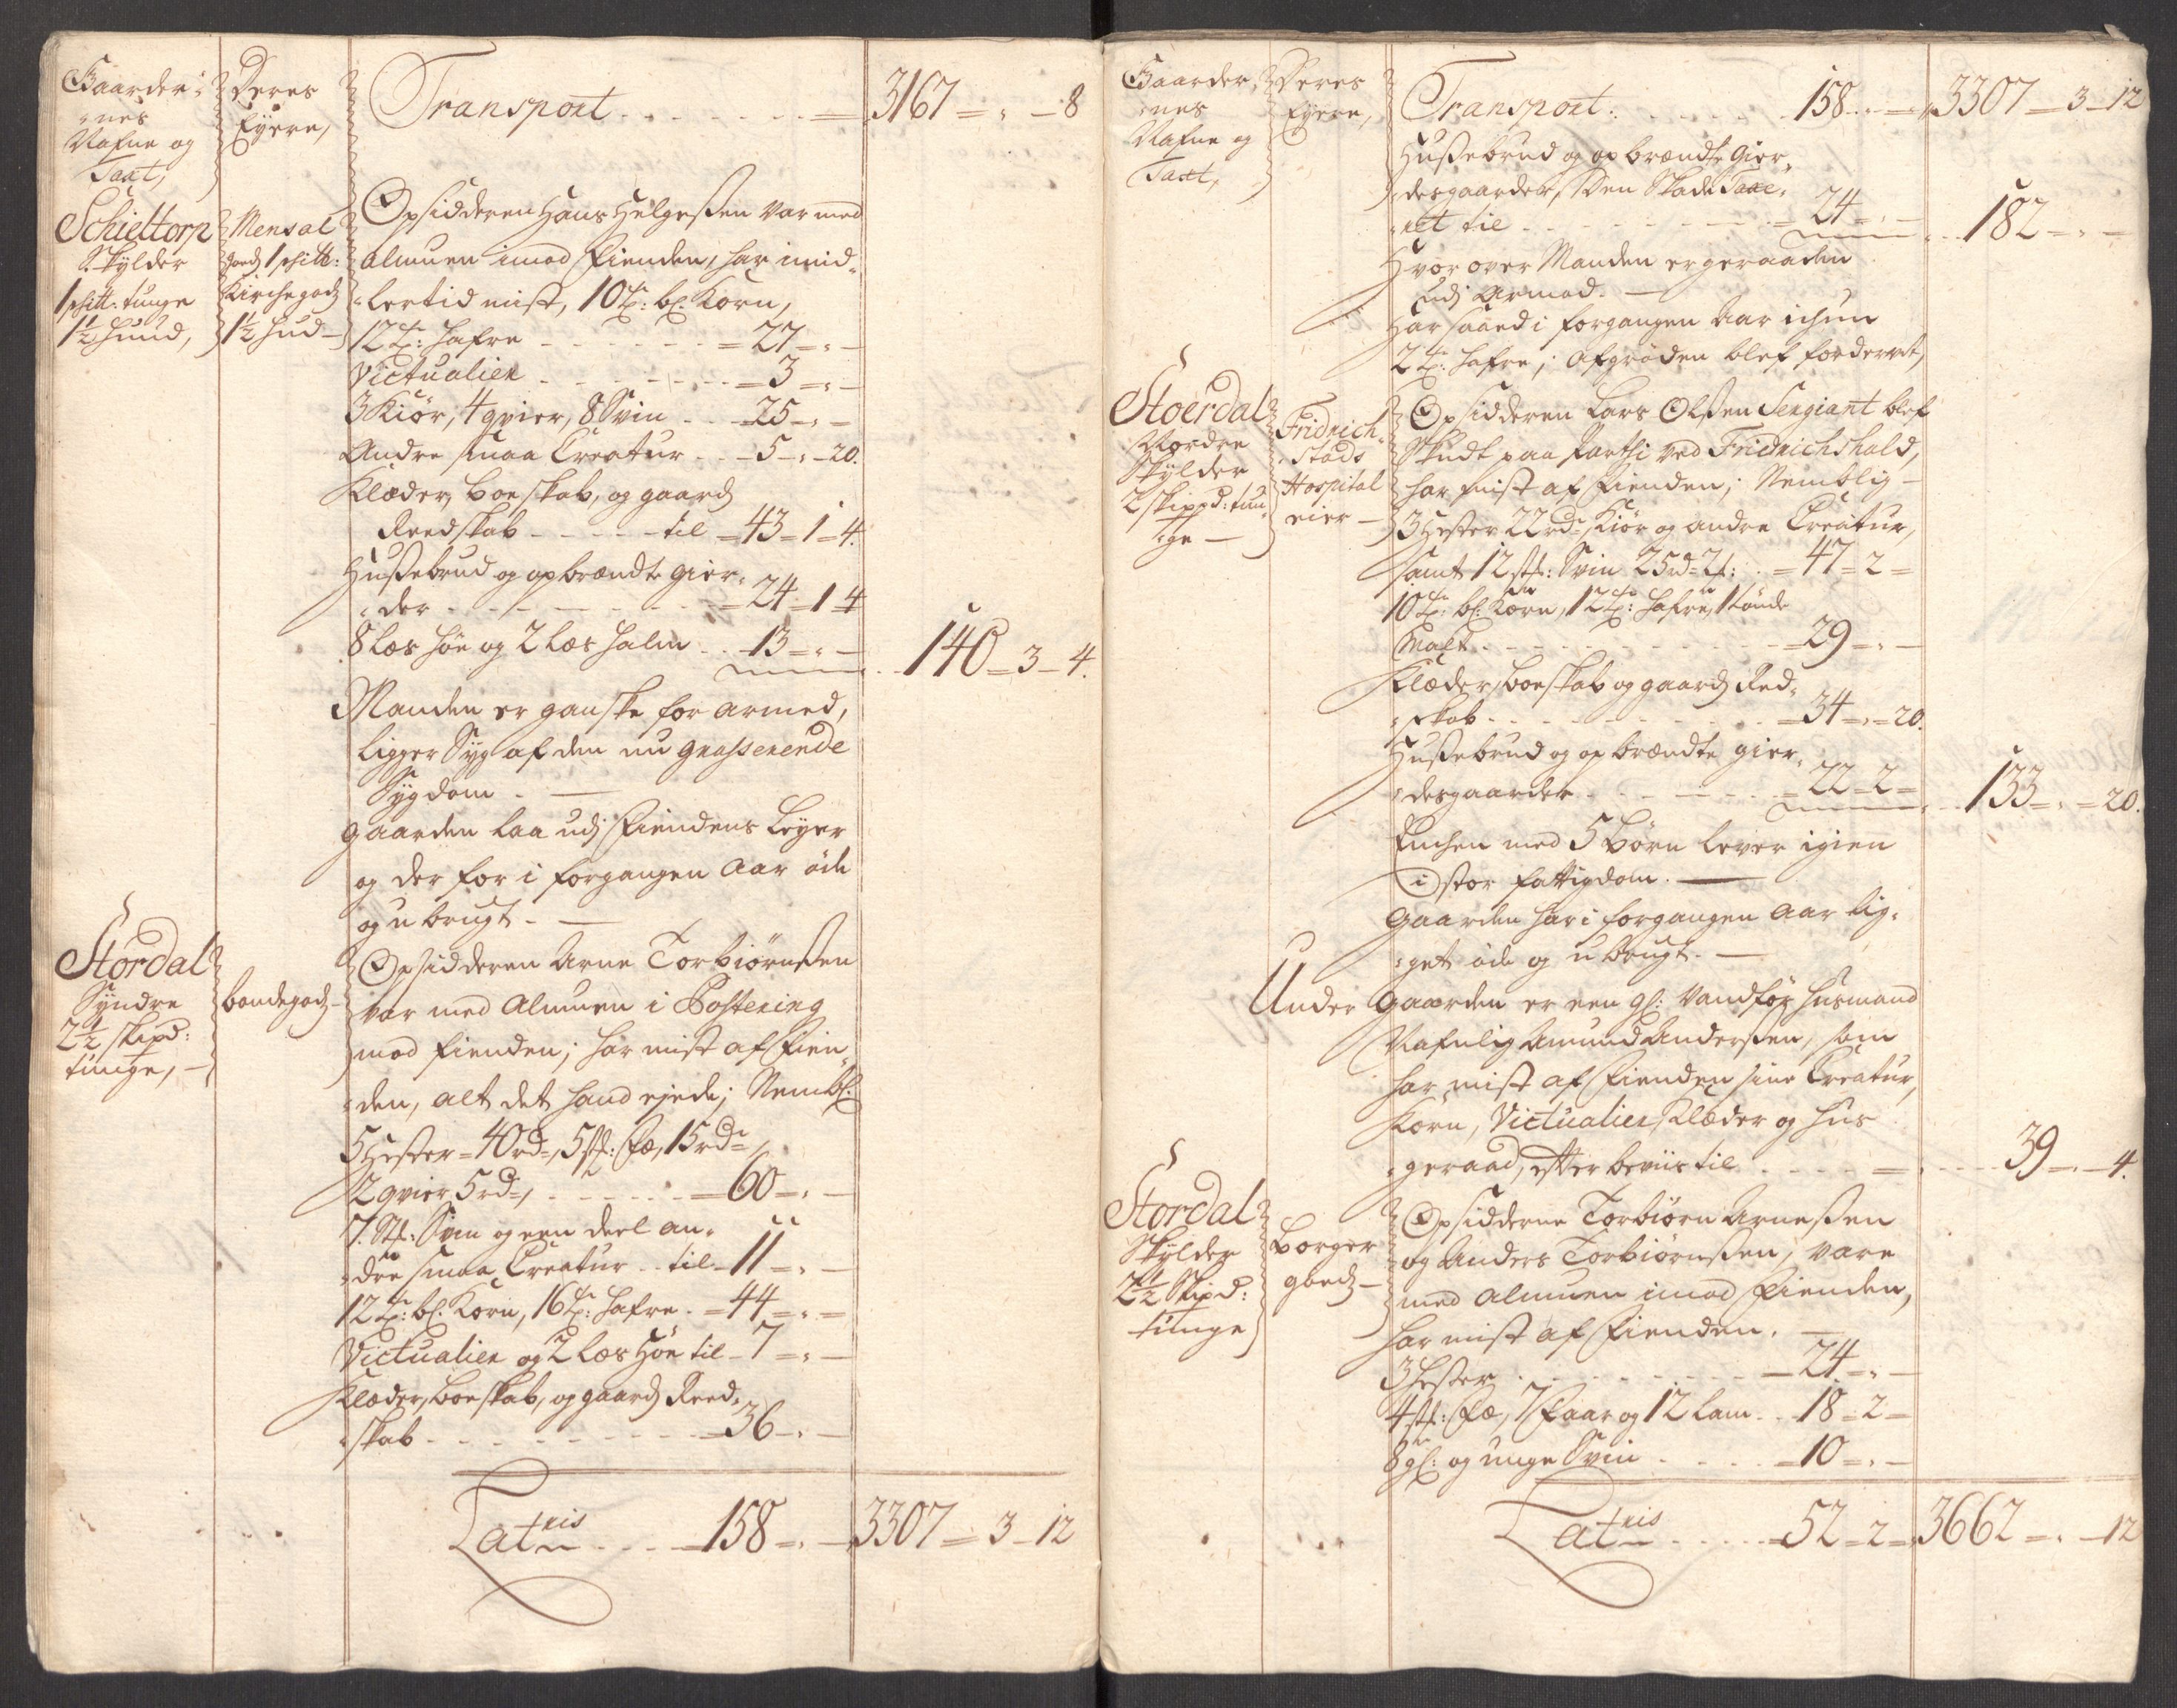 Gaarder-
nes
Nafne og
Taxt,
Deres
Eyere,
Transport . . . . . . . = 3167 = „ - 8
Schieltorp
Skylder
1 schltt: tunge
1½ Huud,
Mensal
Jord 1 schitt:
Kirchegodz
1½ Hud -
Opsidderen Hans Helgessen var med
Almuen imod Fienden, har imid-
lertid mist, 10 tr: bl: Korn,
12 tr: Hafre - - - - - = 27 = „ -
Victualier - - - - - - 3 = „ -
3 Kiør, 4 qvier, 8 Svin . . 25 - „ -
Andre smaa Creatur . . - 5 - „ - 20.
Klæder, Boeskab, og gaardz
Reedskab - - - - til - 43 - 1 - 4.
Hussebrud og opbrændte gier-
der - - - - - - - = 24 = 1 = 4
8 Læs Høe og 2 Læs Halm . . 13 = „ -
140 = 3 - 4.
Manden er ganske forarmed,
ligger Syg af den nu grasserende
Sygdom. —
Gaarden laa udj Fiendens Leyer
og der for i forgangen Aar øde
og u brugt. —
Stordal
Syndre
2½ skipd:
tunge, -
bondegodz -
Opsidderen Arne Torbiørnssen
var med Almuen i Postering
mod Fienden; har mist af Fien-
den, alt det hand ejede; Nembl:
5 Hester = 40 rd=, 5 st: Fæ, 15 rd=,
2 qvier 5 rd=, - - - - - = 60 = „ -
7. St: Svin og een deel an-
dre smaa Creatur . . til - 11 = „ -
12 tr: bl: Korn, 16 tr: Hafre . = 44 = „ =
Victualier og 2 Læs Høe til - 7 = „ -
Klæder, Boeskab, og gaardz Reed-
skab - - - - - - - - 36 - „ -
Lateris . . . - 158 = „ - 3307 = 3 - 12
Gaarder-
nes
Nafne og
Taxt,
Deres
Eyere,
Transport . . . . . . 158 . „ = 3307 - 3 - 12
Hussebrud og opbrændte Gier-
desgaarder, Den Skade Taxe-
ret til . . . . . . . = 24 = „ -
182 = „ -
Hvor over Manden er geraaden
udj armod. —
Har saaed i forgangen Aar ichun
2 tr: Hafre; Afgrøden blef fordervet,
Stoerdal
Nordre
Skylder
2 skippd: tun-
ge —
Fridrich-
stads
Hospital
eier -
Opsidderen Lars Olssen Sergiant blef
Skudt paa Parthi ved Fridrichshald,
har mist af Fienden; Nemblig -
3 Hester 22 rd= Kiør og andre Creatur,
samt 12 st: Svin 25 rd= 2 ƒ: . = 47 = 2 =
10 tr: bl: Korn, 12 tr: Hafre, 1 tønde
Malt - - - - - - - - = 29 = „ -
Klæder, Boeskab og gaardz Red-
skab - - - - - - - - - = 34 = „ = 20.
Hussebrud og op brændte gier-
desgaarder - - - - - - = 22 = 2 =
133 = „ = 20.
Enchen med 5 Børn lever igien
i stor fattigdom. —
Gaarden har i forgangen Aar lig-
get øde og u brugt. —
Under Gaarden er een gl: Vandfør Husmand
Nafnlig Amund Anderssen, som
har mist af Fienden sine Creatur,
Korn, Victualier, Klæder og Hus
geraad, efter beviis til . . . . . = . . . . 39 = „ - 4.
Stordal
Skylder
2½ Skipd:
tunge
Borger
godz -
Opsidderne Torbiørn Arnessen
og Anders Torbiørnssen, vare
med Almuen imod Fienden,
har mist af Fienden. —
3 Hester . . . . . . . . = 24 = „ -
4 st: Fæ, 7 Faar og 12 Lam . . 18 = 2 =
8 gl: og unge Svin . . . . = 10 = „ -
Lateris . . . . - 52 = 2 = 3662 = „ - 12